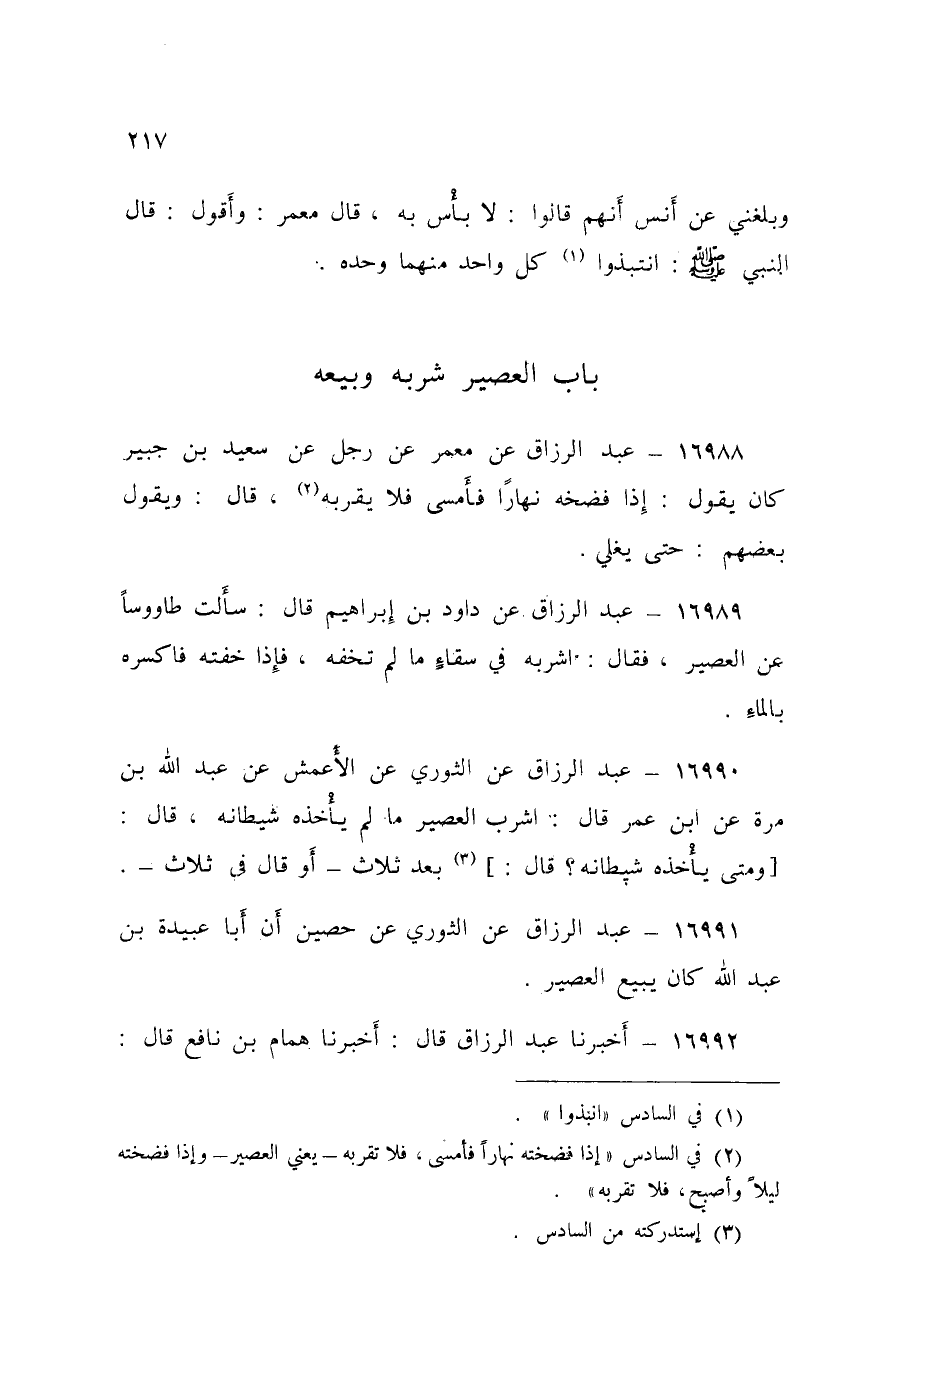 ٢١٧
وبلغني عن أنس أنهم قالوا : لا بأس به ، قال معمر : وأقول : قال
النبي ﷺ : انتبذوا (١) كل واحد منهما وحده .
باب العصير شربه وبيعه
١٦٩٨٨ – عبد الرزاق عن معمر عن رجل عن سعيد بن جبير
كان يقول : إذا فضخه نهارًا فأمسى فلا يقربه(٢) ، قال : ويقول
بعضهم : حتى يغلي .
١٦٩٨٩ – عبد الرزاق عن داود بن إبراهيم قال : سألت طاووساً
عن العصير ، فقال : اشربه في سقاءٍ ما لم تخفه ، فإذا خفته فاكسره
بالماءِ .
١٦٩٩٠ – عبد الرزاق عن الثوري عن الأعمش عن عبد الله بن
مرة عن ابن عمر قال : اشرب العصير ما لم يأخذه شيطانه ، قال :
[ومتى يأخذه شيطانه؟ قال : ] (٣) بعد ثلاث – أو قال في ثلاث – .
١٦٩٩١ – عبد الرزاق عن الثوري عن حصين أن أبا عبيدة بن
عبد الله كان يبيع العصير .
١٦٩٩٢ – أخبرنا عبد الرزاق قال : أخبرنا همام بن نافع قال :
(١) في السادس «انبذوا» .
(٢) في السادس « إذا فضخته نهاراً فأمسى ، فلا تقربه – يعني العصير – وإذا فضخته
ليلاً وأصبح ، فلا تقربه» .
(٣) إستدركته من السادس .